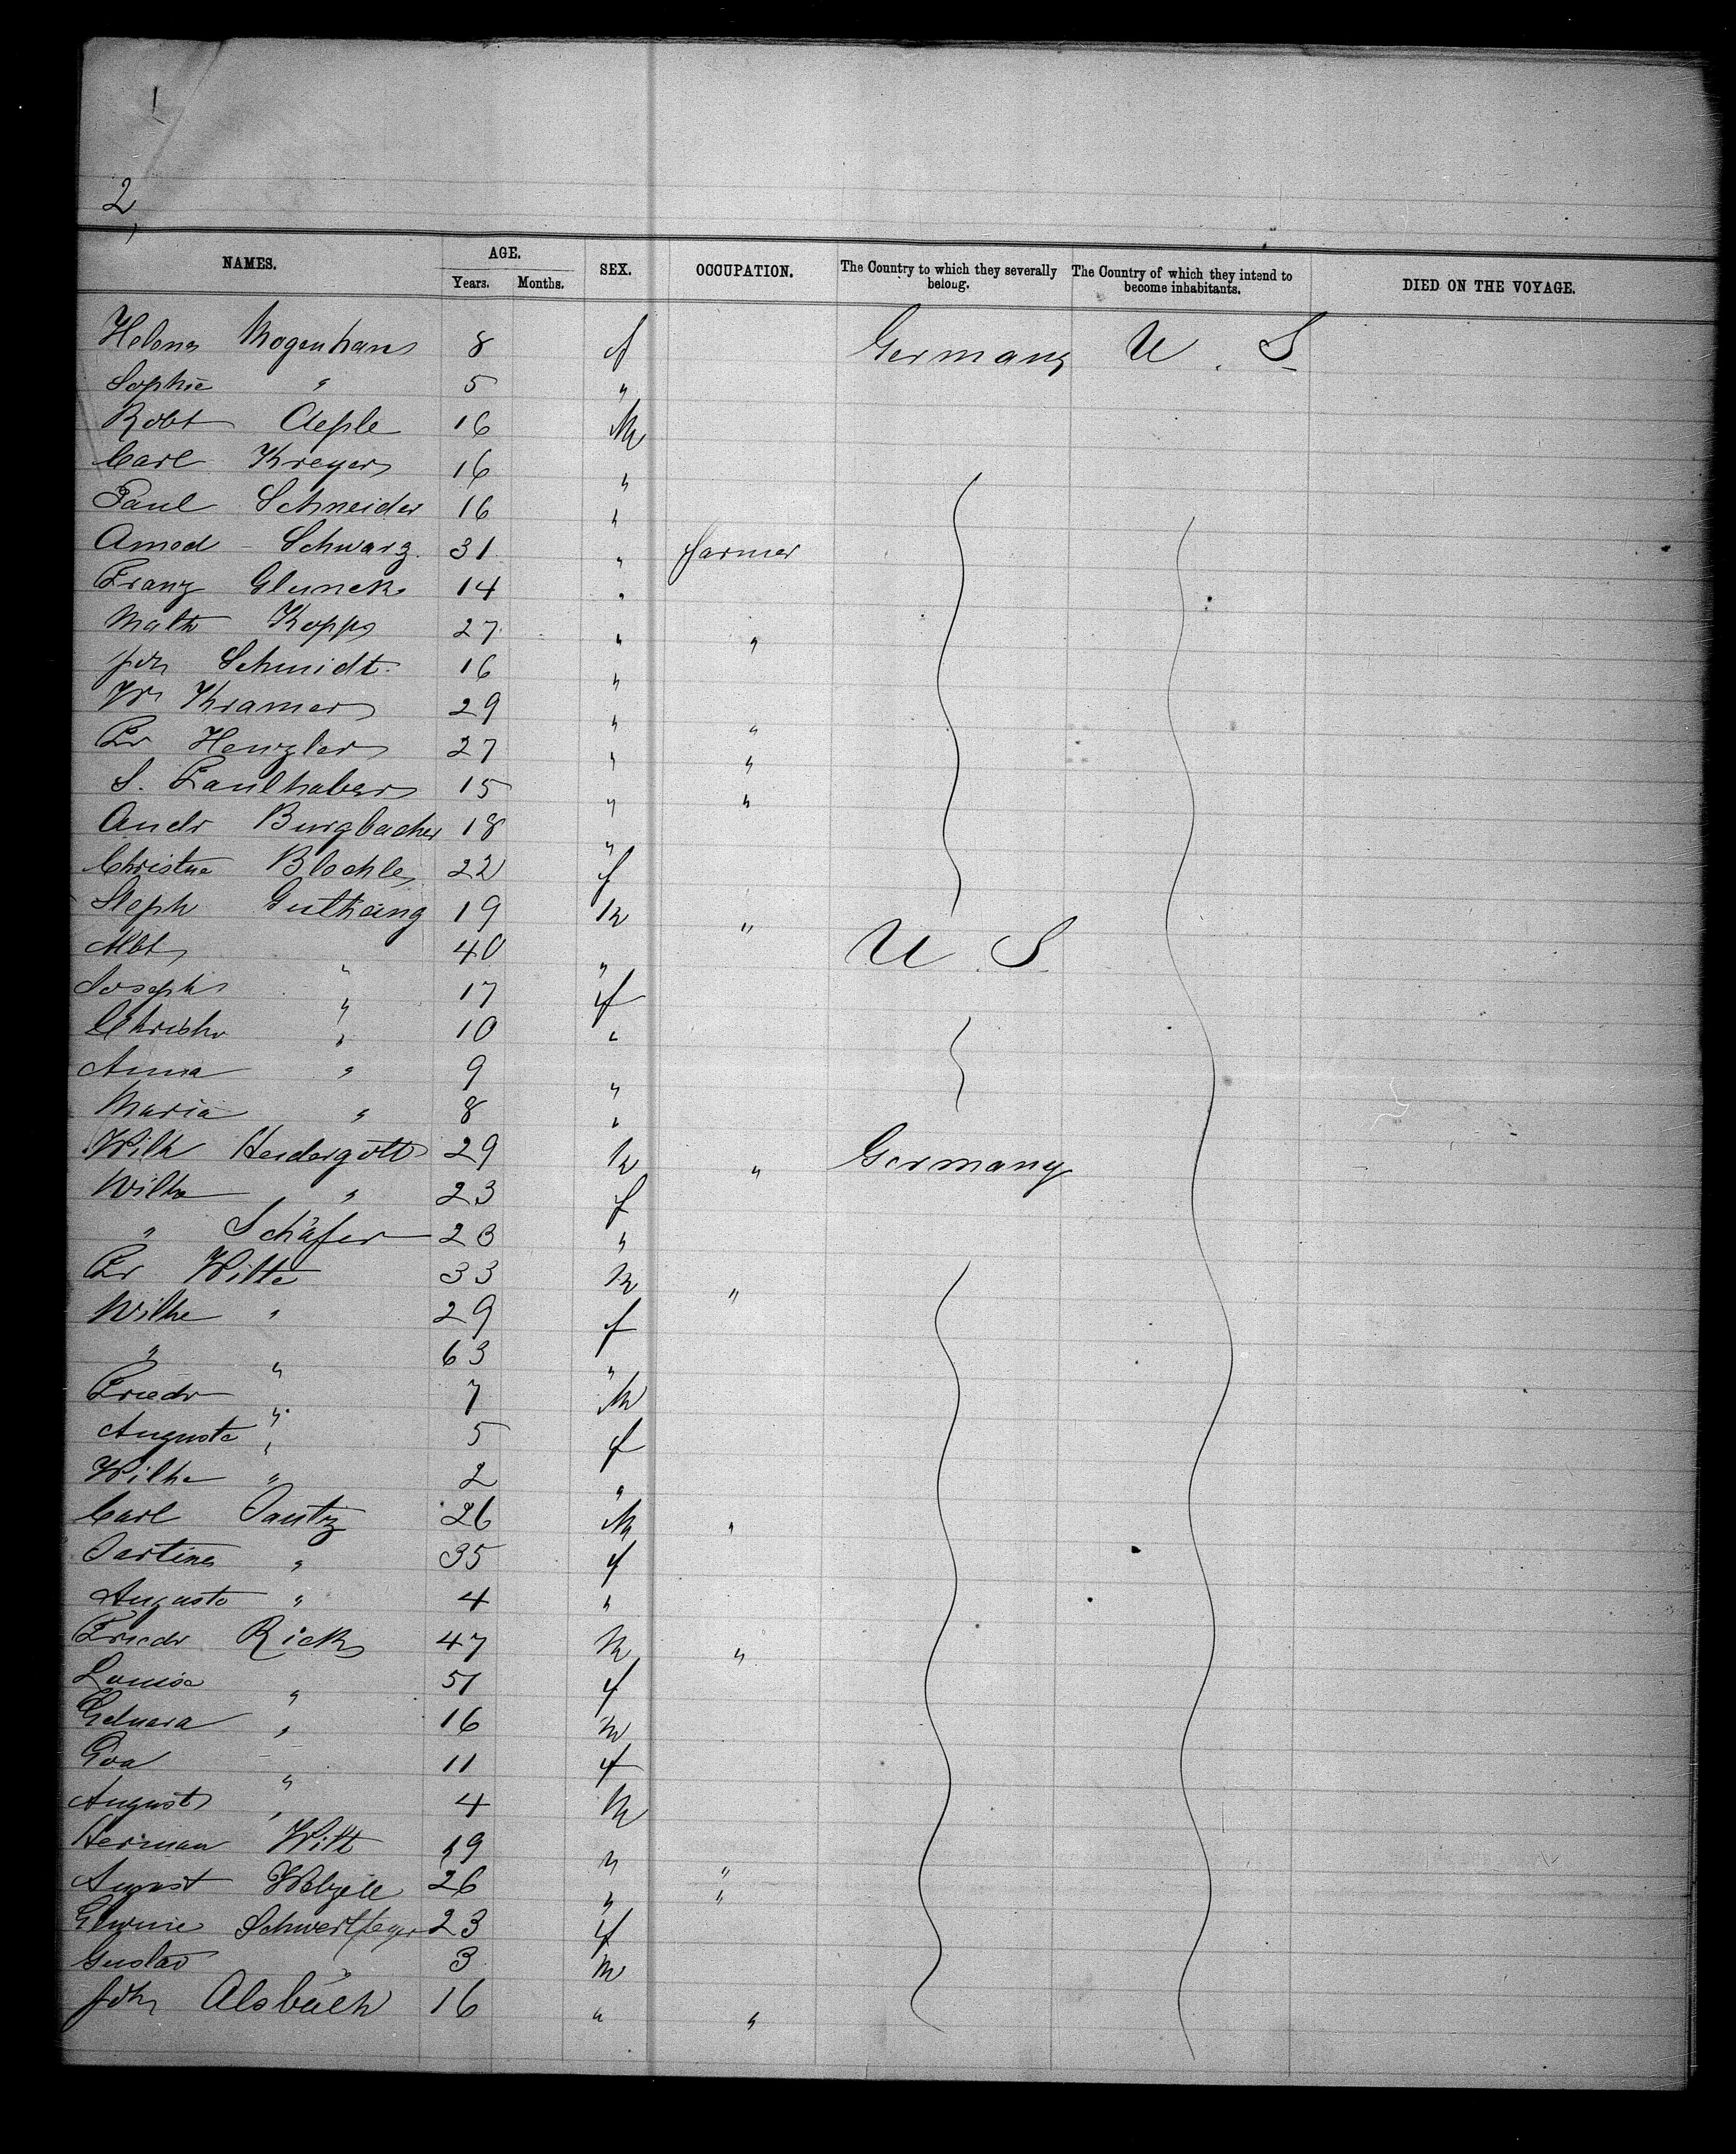 2,
NAMES. AGE. SEX. OCCUPATION. The Country to which they severally belong. The Country of which they intend to become inhabitants. DIED ON THE VOYAGE.
Years. Months.
Helena Mogenhan 8 f Germany U. S.
Sophie " 5 "
Robt Aeple 16 M
Carl Kreyer 16 "
Paul Schneider 16 "
Amod Schwarz 31 " farmer
Franz Glunck 14 "
Math Kopp 27 " "
Joh Schmidt 16 "
Wm Kramer 29 " "
Fr Henzler 27 " "
S. Faulhaber 15 " "
Andr Burgbacher 18 "
Christne Blochle 22 f
Steph Guthäing 19 M "
Albt " 40 " U. S.
Joseph " 17 f
Christn " 10 "
Anna " 9 "
Maria " 8 "
Wilh Heidergott 29 M " Germany
Wilhe " 23 f
" Schäfer 23 "
Fr Witte 33 M "
Wilhe " 29 f
" " 63 "
Friedr " 7 M
Auguste " 5 f
Wilhe " 2 "
Carl Pautz 26 M "
" 35 f
Auguste " 4 "
Friedr Rick 47 M "
Louise " 51 f
" 16 M
Eva " 11 f
August " 4 M
Herman Witt 19 " "
August 26 " "
Schwertfeger 23 f
Gustav " 3 M
Joh Alsbach 16 " "